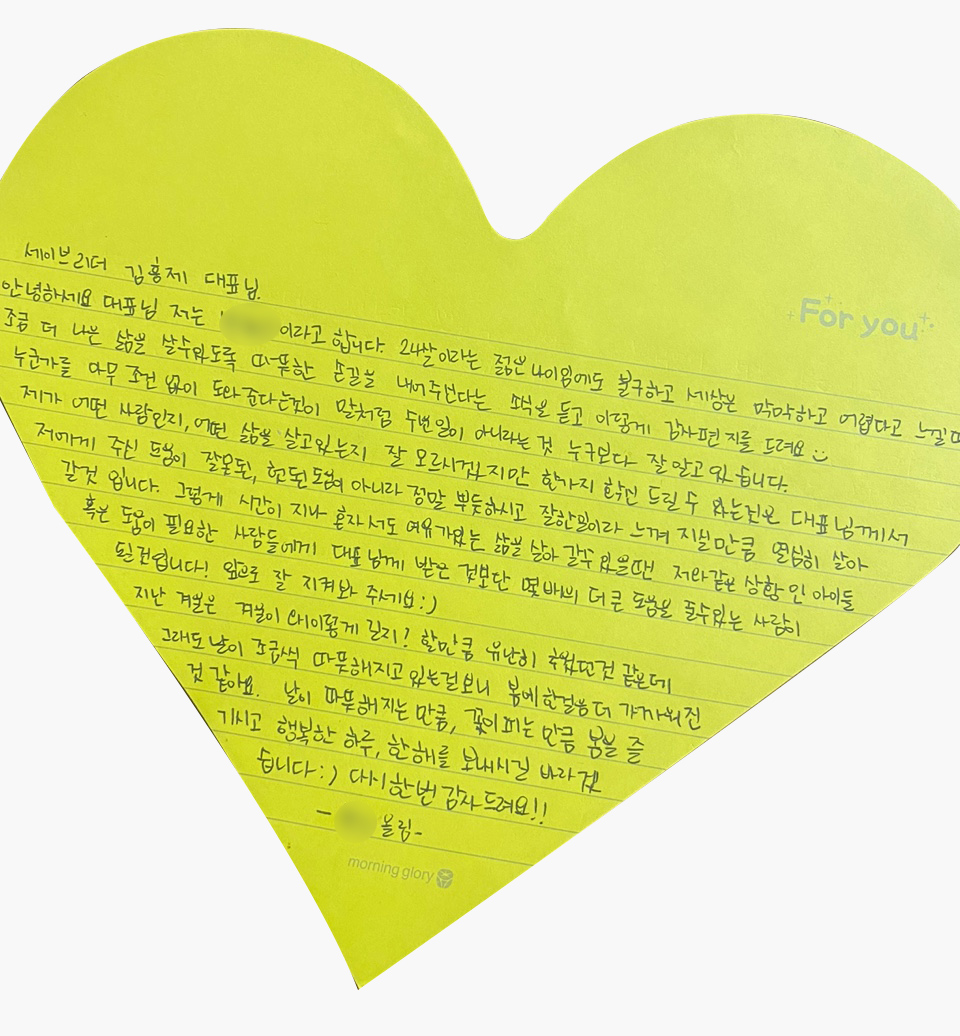 For you
세이브리더 김홍제 대표님.
안녕하세요 대표님 저는 이라고 합니다. 24살이라는 젊은 나이임에도 불구하고 세상은 막막하고 어렵다고 느낄때
조금 더 나은 삶을 살수있도록 따뜻한 손길을 내어주신다는 소식을 듣고 이렇게 감사편지를 드려요
누군가를 아무 조건 없이 도와준다는것이 말처럼 두번일이 아니라는 것 누구보다 잘 알고 있습니다.
제가 어떤 사람인지, 어떤 삶을 살고있는지 잘 모르시겠지만 한가지 확신 드릴 수 있는것은 대표님께서
저에게 주신 도움이 잘못된, 헛된도움이 아니라 정말 뿌듯하시고 잘한일이라 느껴지실만큼 열심히 살아
갈것 입니다. 그렇게 시간이 지나 혼자서도 여유가있는 삶을 살아 갈수 있을땐 저와같은 상황인 아이들
혹은 도움이 필요한 사람들에게 대표님께 받은 것보단 몇배의 더 큰 도움을 줄수있는 사람이
될것입니다! 앞으로 잘 지켜봐 주세요:)
지난 겨울은 겨울이 왜이렇게 길지? 할만큼 유난히 추웠던것 같은데
그래도 날이 조금씩 따뜻해지고 있는걸보니 봄에 한걸음 더 가까워진
것 같아요. 날이 따뜻해지는 만큼, 꽃이 피는 만큼 봄을 즐
기시고 행복한 하루, 한해를 보내시길 바라겠
습니다:) 다시한번 감사드려요!!
- 올림-
morning glory